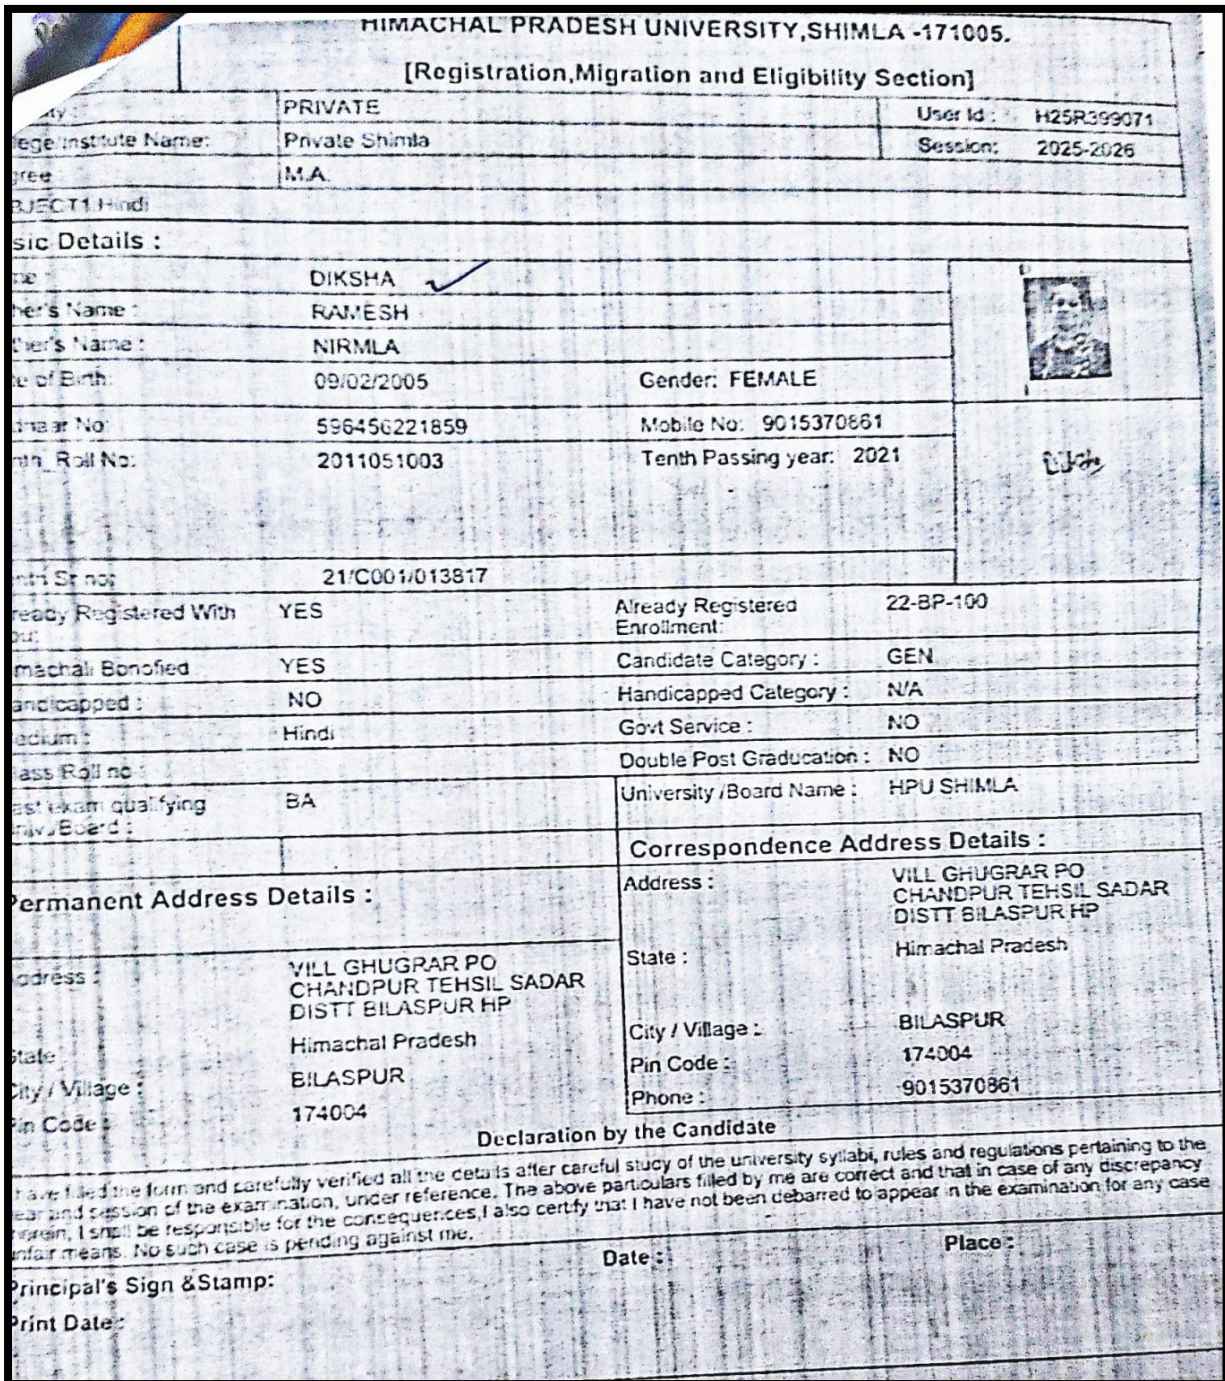 HIMACHAL PRADESH UNIVERSITY,SHIMLA -171005.
[Registration,Migration and Eligibility Section]
PRIVATE User Id : H25R399071
lege/Institute Name: Private Shimla Session: 2025-2026
gree M.A.
BJECT1.Hindi
sic Details :
me DIKSHA
her's Name : RAMESH
ther's Name : NIRMLA
e of Birth: 09/02/2005 Gender: FEMALE
dhaar No: 596456221859 Mobile No: 9015370861
nth_Roll No: 2011051003 Tenth Passing year: 2021
enth Sr no: 21/C001/013817
ready Registered With YES Already Registered 22-BP-100
Enrollment:
machali Bonofied YES Candidate Category : GEN
andicapped : NO Handicapped Category : N/A
edium : Hindi Govt Service : NO
lass Roll no : Double Post Graducation : NO
ast exam qualifying BA University /Board Name : HPU SHIMLA
niv./Board :
Correspondence Address Details :
Permanent Address Details :
Address : VILL GHUGRAR PO
CHANDPUR TEHSIL SADAR
DISTT BILASPUR HP
State : Himachal Pradesh
City / Village : BILASPUR
Pin Code : 174004
Phone : 9015370861
ddress : VILL GHUGRAR PO
CHANDPUR TEHSIL SADAR
DISTT BILASPUR HP
State Himachal Pradesh
City / Village : BILASPUR
Pin Code : 174004
Declaration by the Candidate
have filled the form and carefully verified all the details after careful study of the university syllabi, rules and regulations pertaining to the
ear and session of the examination, under reference. The above particulars filled by me are correct and that in case of any discrepancy
herein, I shall be responsible for the consequences,I also certify that I have not been debarred to appear in the examination for any case
nfair means. No such case is pending against me.
Date : Place :
Principal's Sign &Stamp:
Print Date :